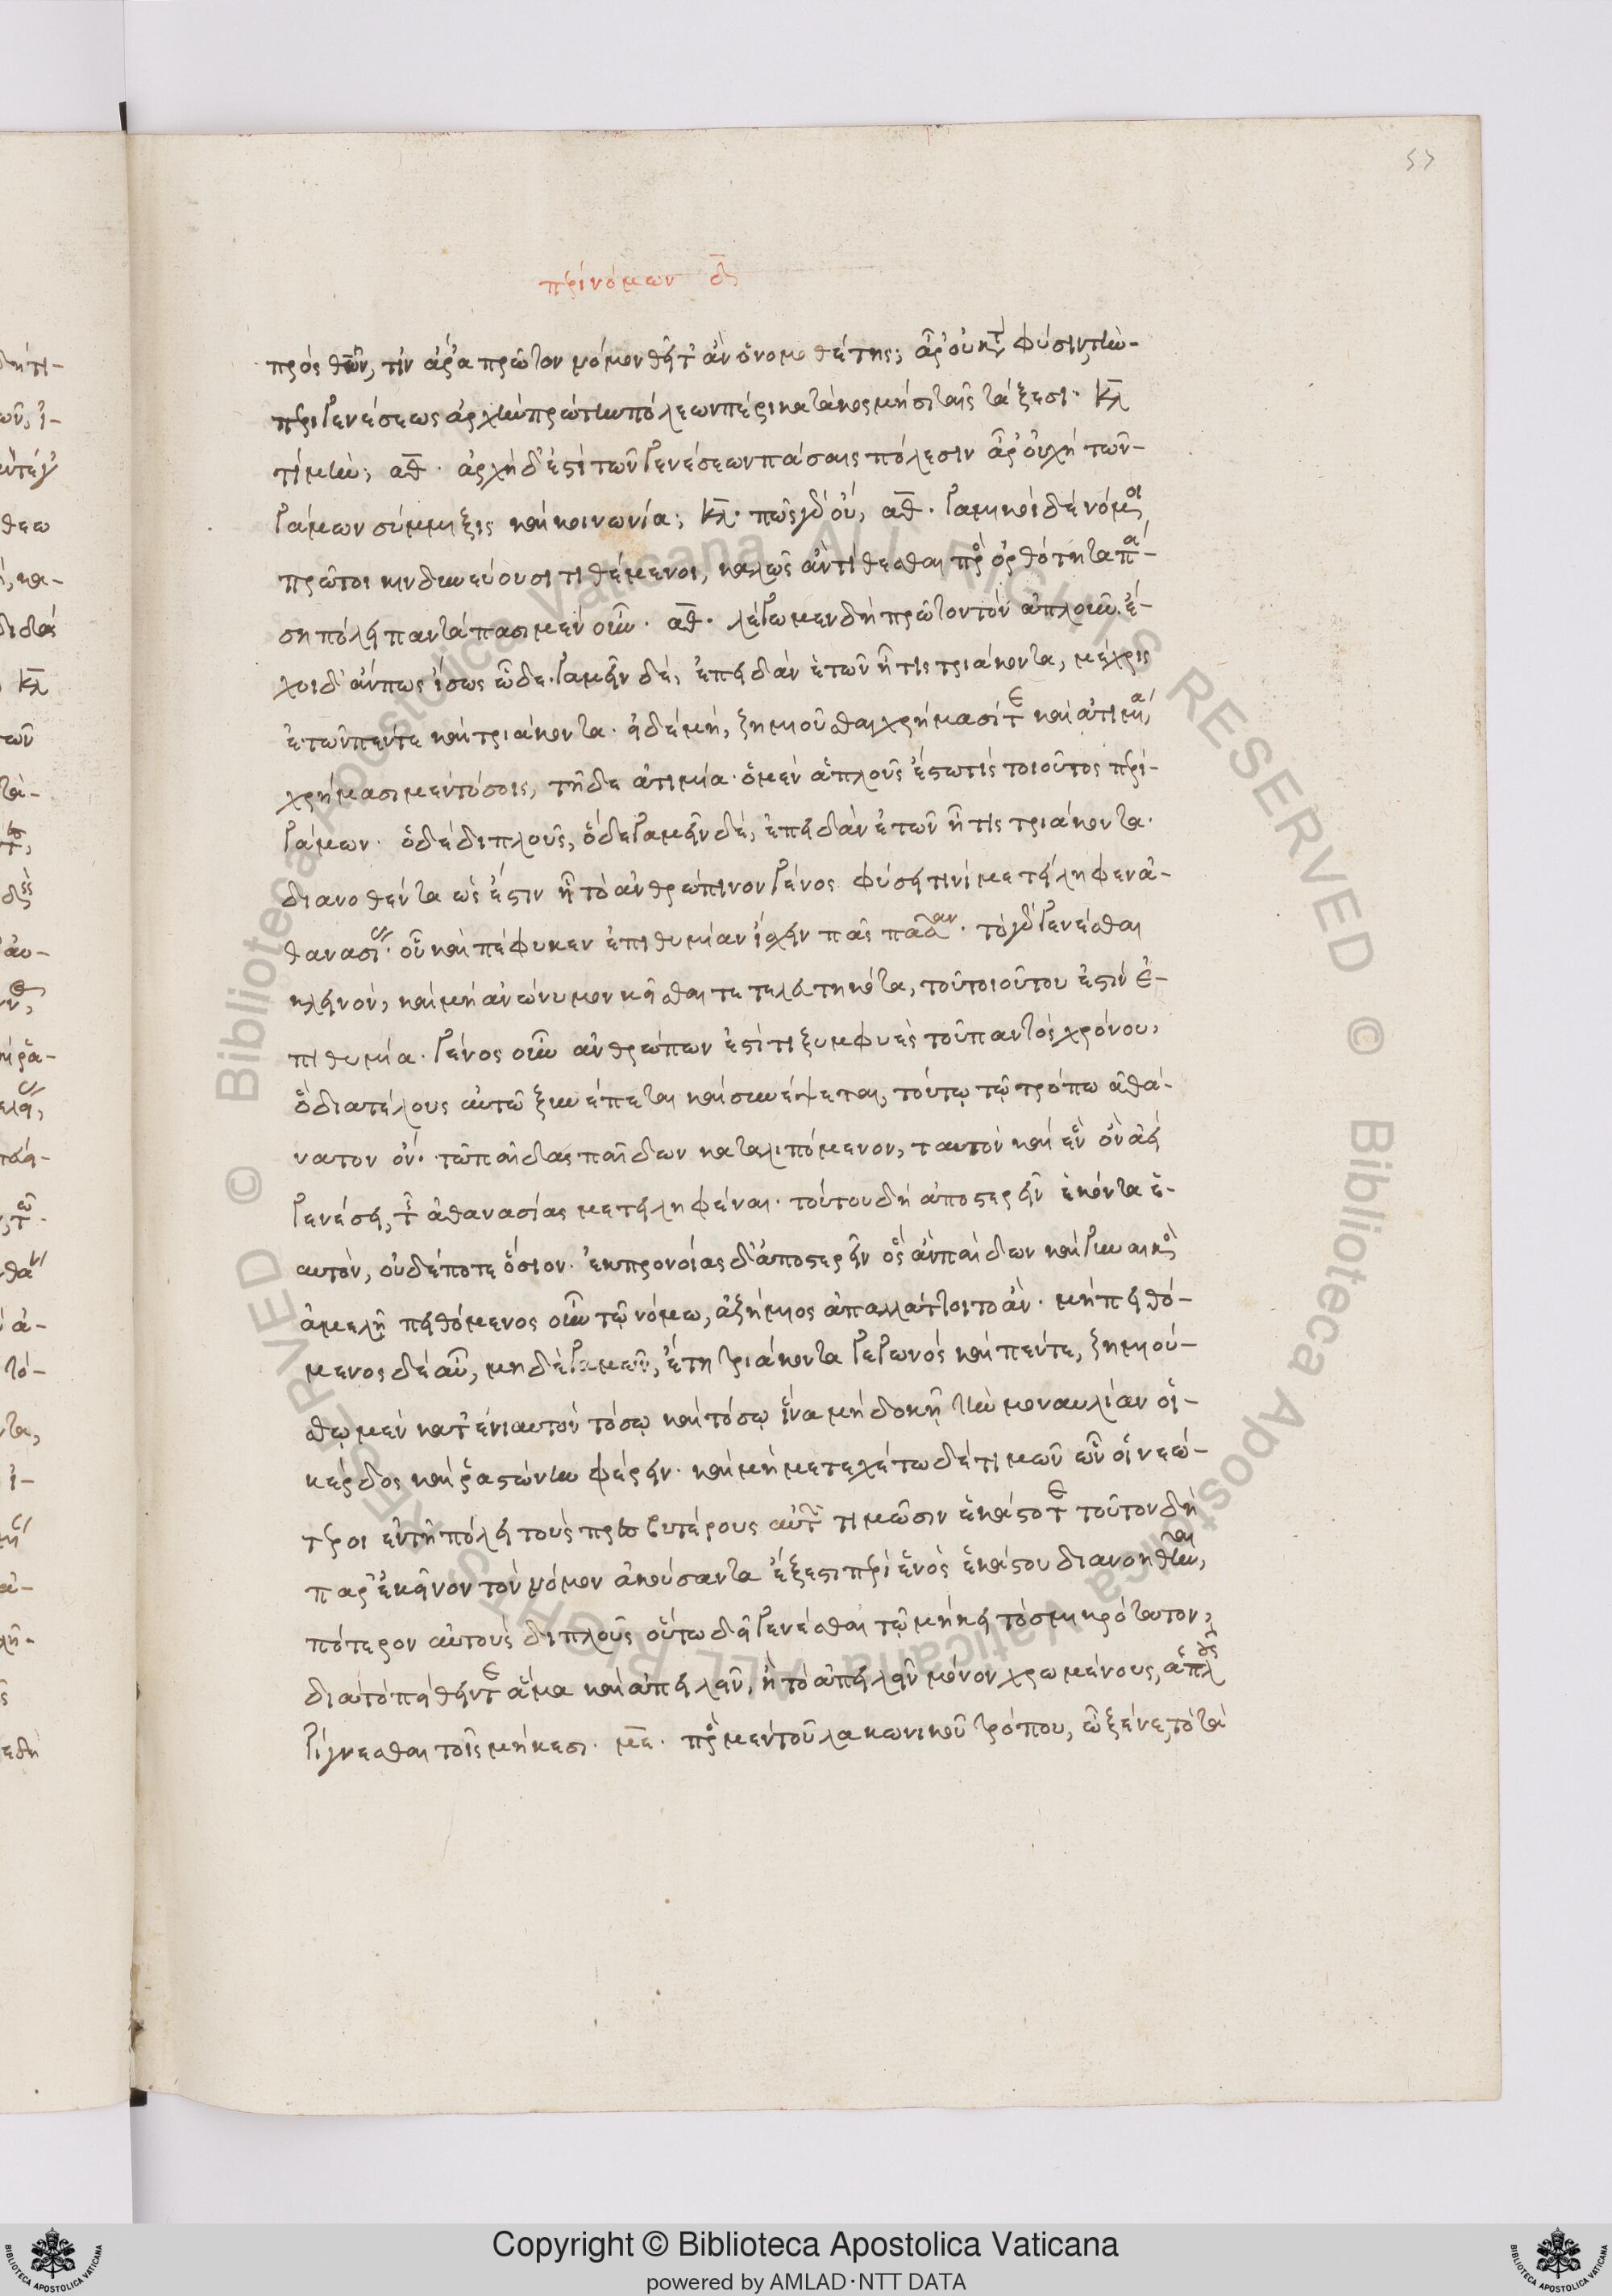 57
περὶ νόμων δ
πρὸς θεῶν, τίν' ἄρα πρῶτον νόμον θεῖτ' ἂν ὁ νομοθέτης; ἆρ' οὐ κατὰ φύσιν, τὴν
περὶ γενέσεως ἀρχὴν πρώτην πόλεων πέρι κατακοσμήσει ταῖς τάξεσι· κλ
τί μήν; αθ. ἀρχὴ δ' ἐστὶ τῶν γενέσεων πάσαις πόλεσιν ἆρ' οὐχ ἡ τῶν
γάμων σύμμιξις καὶ κοινωνία; κλ. πῶς γὰρ οὔ; αθ. γαμικοὶ δὲ νόμοι
πρῶτοι κινδυνεύουσι τιθέμενοι, καλῶς ἂν τίθεσθαι πρὸς ὀρθότητα πά-
σῃ πόλει παντάπασι μὲν οὖν. αθ. λέγωμεν δὴ πρῶτον τὸν ἁπλοῦν. ἔ-
χοι δ' ἄν πως ἴσως ὧδε. γαμεῖν δὲ, ἐπειδὰν ἐτῶν ᾖ τις τριάκοντα, μέχρις
ἐτῶν πέντε καὶ τριάκοντα· εἰ δὲ μή, ζημιοῦσθαι χρήμασί τε καὶ ἀτιμίᾳ,
χρήμασι μὲν τόσοις, τῇ δε ἀτιμίᾳ· ὁ μὲν ἁπλοῦς ἔστω τίς τοιοῦτος περὶ
γάμων· ὁ δὲ διπλοῦς, ὅδε γαμεῖν δὲ, ἐπειδὰν ἐτῶν ᾖ τις τριάκοντα.
διανοθέντα ὡς ἔστιν ᾗ τὸ ἀνθρώπινον γένος φύσει τινὶ μετείληφεν ἀ-
θανασίας· οὗ καὶ πέφυκεν ἐπιθυμίαν ἴσχειν πᾶς πᾶσαν· τὸ γὰρ γενέσθαι
κλεινὸν, καὶ μὴ ἀνώνυμον κεῖσθαι τετελευτηκότα, τοῦ τοιούτου ἐστὶν ἐ-
πιθυμία. γένος οὖν ἀνθρώπων ἐστί τι ξυμφυὲς τοῦ παντὸς χρόνου,
ὃ διατέλους αὐτῷ ξυνέπεται καὶ συνέψεται, τούτῳ τῷ τρόπῳ ἀθά-
νατον ὄν· τῷ παῖδας παίδων καταλιπόμενον, ταυτὸν καὶ ἓν ὂν ἀεὶ
γενέσει, τῆς ἀθανασίας μετειληφέναι· τούτου δὴ ἀποστερεῖν ἑκόντα ἑ-
αυτὸν, οὐδέποτε ὅσιον· ἐκ προνοίας δ' ἀποστερεῖν ὃς ἂν παίδων καὶ γυναικὸς
ἀμελῇ πειθόμενος οὖν τῷ νόμῳ, ἀζήμιος ἀπαλλάττοιτο ἄν. μὴ πειθό-
μενος δὲ αὖ, μηδὲ γαμῶν, ἔτη τριάκοντα γεγονὸς καὶ πέντε, ζημιού-
σθω μὲν κατ' ἐνιαυτὸν τόσῳ καὶ τόσῳ ἵνα μὴ δοκῇ τὴν μοναυλίαν οἱ
κέρδος καὶ ῥᾳστώνην φέρειν. καὶ μὴ μετεχέτω δὲ τιμῶν ὧν οἱ νεώ-
τεροι ἐν τῇ πόλει τοὺς πρεσβυτέρους αὐτῶν τιμῶσιν ἑκάστοτε τοῦτον δὴ
παρ' ἐκεῖνον τὸν νόμον ἀκούσαντα ἔξεστι περὶ ἑνὸς ἑκάστου διανοηθῆναι,
πότερον αὐτοὺς διπλοῦς οὕτω δεῖ γενέσθαι τῷ μήκει τὸ σμικρότατον,
διὰ τὸ πείθειν τε ἅμα καὶ ἀπειλεῖν, ἢ τὸ ἀπειλεῖν μόνον χρωμένους, ἁπλοῦς
γίγνεσθαι τοῖς μήκεσι. με. πρὸς μὲν τοῦ λακωνικοῦ τρόπου, ὦ ξένε, τὸ τὰ
Copyright © Biblioteca Apostolica Vaticana
powered by AMLAD·NTT DATA